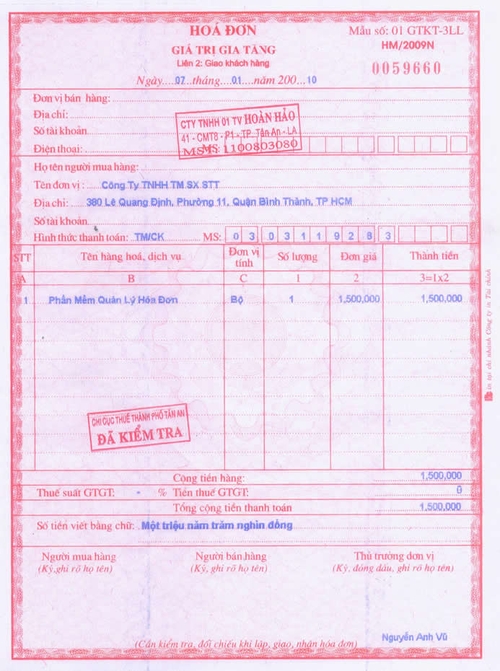 HOÁ ĐƠN
GIÁ TRỊ GIA TĂNG
Liên 2: Giao khách hàng
Mẫu số: 01 GTKT-3LL
HM/2009N
0059660
Ngày....07...tháng....01....năm 200...10
Đơn vị bán hàng:
Địa chỉ:
Số tài khoản
Điện thoại: MS:
CTY TNHH 01 TV HOÀN HẢO
41 - CMT8 - P1 - TP Tân An - LA
MST: 1100803080
Họ tên người mua hàng:
Tên đơn vị: Công Ty TNHH TM SX STT
Địa chỉ: 380 Lê Quang Định, Phường 11, Quận Bình Thành, TP HCM
Số tài khoản
Hình thức thanh toán: TM/CK MS: 0 3 0 3 1 1 9 2 8 3
STT Tên hàng hoá, dịch vụ Đơn vị tính Số lượng Đơn giá Thành tiền
A B C 1 2 3=1x2
1 Phần Mềm Quản Lý Hóa Đơn Bộ 1 1,500,000 1,500,000
CHI CỤC THUẾ THÀNH PHỐ TÂN AN
ĐÃ KIỂM TRA
Cộng tiền hàng: 1,500,000
Thuế suất GTGT: - % Tiền thuế GTGT: 0
Tổng cộng tiền thanh toán 1,500,000
Số tiền viết bằng chữ: Một triệu năm trăm nghìn đồng
Người mua hàng Người bán hàng Thủ trưởng đơn vị
(Ký, ghi rõ họ tên) (Ký, ghi rõ họ tên) (Ký, đóng dấu, ghi rõ họ tên)
Nguyễn Anh Vũ
(Cần kiểm tra, đối chiếu khi lập, giao, nhận hóa đơn)